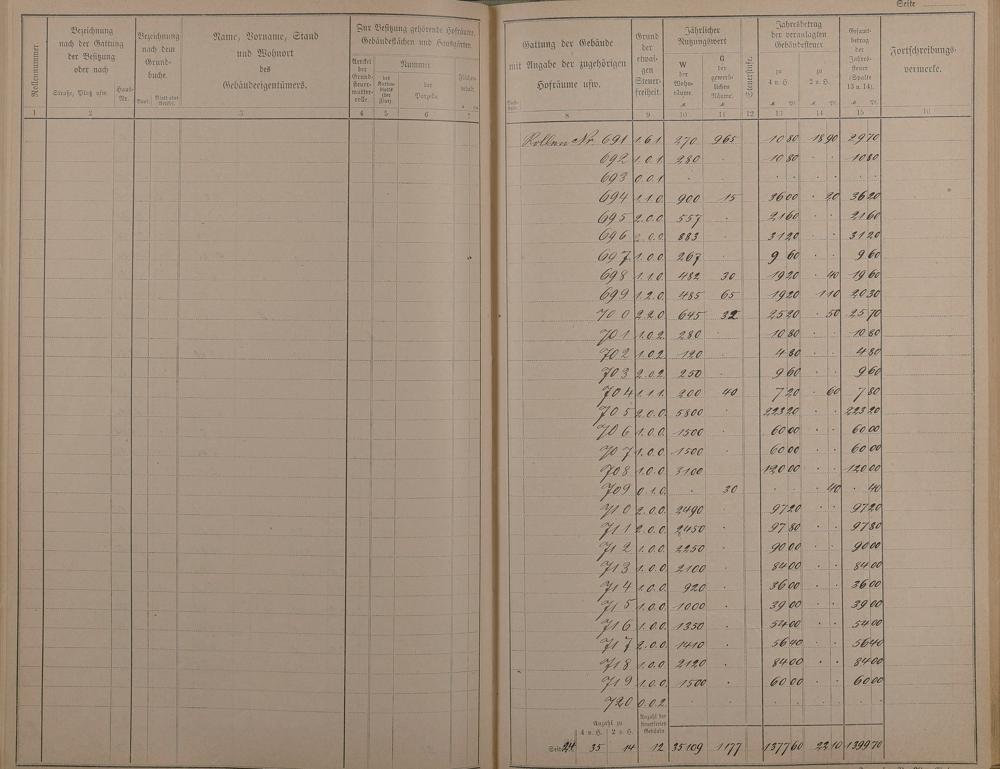 Seite
Rollennummer
Bezeichnung nach der Gattung der Besitzung oder nach
Straße, Platz usw.
Haus-Nr.
Bezeichnung nach dem Grund-buche.
Band.
Name, Vorname, Stand
und Wohnort
des
Gebäudeeigentümers.
Zur Besitzung gehörende Hofräume,
Gebäudeflächen und Hausgärten.
Artikel der Grund-steuer-mutter-rolle
Nummer
des Karten-blatts (der Flur)
der Parzelle
Flächen-inhalt
1 2 3 4 5 6 7
Gattung der Gebäude
mit Angabe der zugehörigen
Hofräume usw.
Grund der etwai-gen Steuer-freiheit.
Jährlicher Nutzungswert
W der Wohn-räume
G der gewerb-lichen Räume.
Steuerstufe.
Jahresbetrag der veranlagten Gebäudesteuer
zu 4 v. H.
zu 2 v. H.
Gesamt-betrag der Jahres-steuer (Spalte 13 u. 14).
Fortschreibungs-
vermerke.
8 9 10 11 12 13 14 15 16
Rollen Nr. 691 1.6.1. 270 965 10 80 18 90 29 70
692 1.0.1. 280 · 10 80 · · 10 80
693 0.0.1 · · · · · · · ·
694 1.1.0. 900 15 36 00 · 20 36 20
695 2.0.0. 557 · 21 60 · · 21 60
696 2.0.0. 883 · 31 20 · · 31 20
697 1.0.0. 267 · 9 60 · · 9 60
698 1.1.0. 482 30 19 20 · 40 19 60
699 1.2.0. 485 65 19 20 1 10 20 30
700 2.2.0. 645 32 25 20 · 50 25 70
701 1.0.2. 280 · 10 80 · · 10 80
702 1.0.2. 120 · 4 80 · · 4 80
703 2.0.2. 250 · 9 60 · · 9 60
704 1.1.1. 200 40 7 20 · 60 7 80
705 2.0.0. 5800 · 223 20 · · 223 20
706 1.0.0. 1500 · 60 00 · · 60 00
707 1.0.0. 1500 · 60 00 · · 60 00
708 1.0.0. 3100 · 120 00 · · 120 00
709 0.1.0. · 30 · · · 40 · 40
710 2.0.0. 2490 · 97 20 · · 97 20
711 2.0.0. 2450 · 97 80 · · 97 80
712 1.0.0. 2250 · 90 00 · · 90 00
713 1.0.0. 2100 · 84 00 · · 84 00
714 1.0.0. 920 · 36 00 · · 36 00
715 1.0.0. 1000 · 39 00 · · 39 00
716 1.0.0. 1350 · 54 00 · · 54 00
717 2.0.0. 1410 · 56 40 · · 56 40
718 1.0.0. 2120 · 84 00 · · 84 00
719 1.0.0. 1500 · 60 00 · · 60 00
720 0.0.2. · · · · · · · ·
Anzahl zu
4 v. H. 2 v. H.
Anzahl der steuerfreien Gebäude
Seite 24 35 14 12 35 109 1177 1377 60 22 10 1399 70